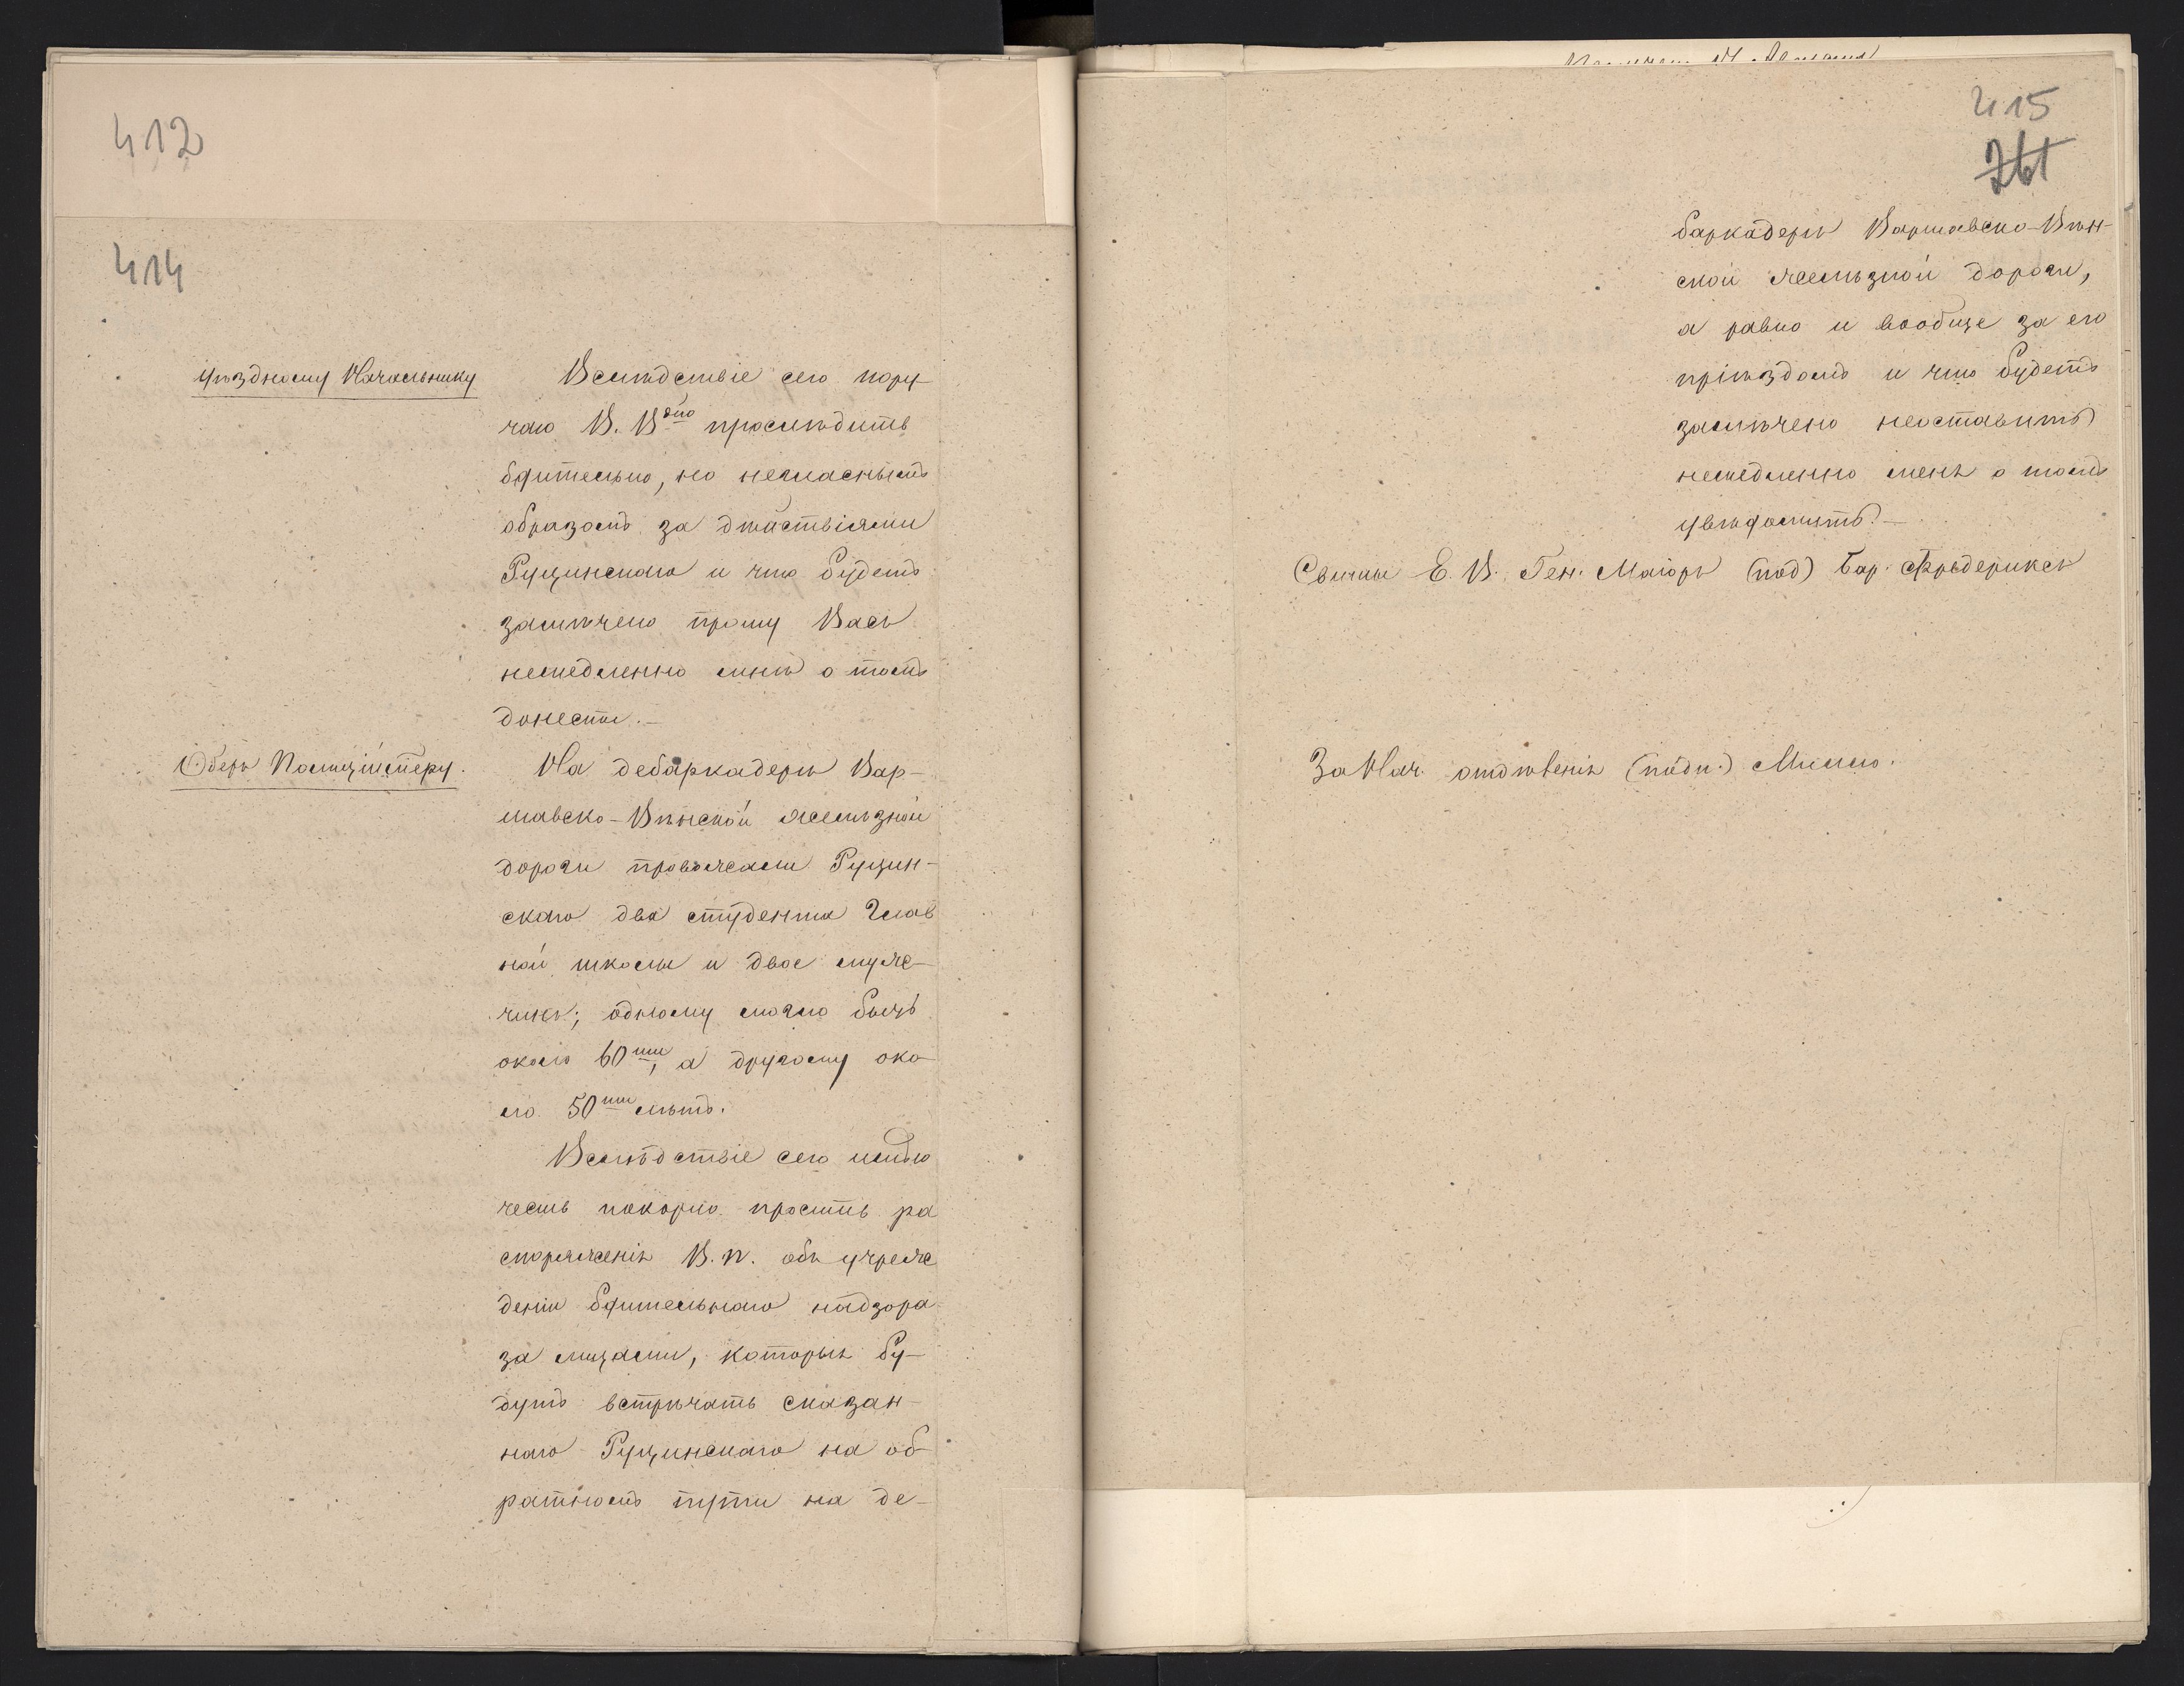 412
414
Уѣздному Начальнику
Вслѣдствіе сего пору-
чаю В. В.діго прослѣдить
бдительно, но негласнымъ
образомъ за дѣйствіями
Рущинскаго и что будетъ
замѣчено прошу Васъ
немедленно мнѣ о томъ
донести.-
Оберъ Полиціймейстеру.
На дебаркадерѣ Вар-
шавско-Вѣнской желѣзной
дороги провожали Рущин-
скаго два студента Глав
ной школы и двое мужч-
чинъ; одному могло быть
около 60ти, а другому око-
ло 50ти лѣтъ.
Вслѣдствіе сего имѣю
честь покорно просить ра
споряженія В. П. объ учреж
деніи бдительнаго надзора
за лицами, которыя бу-
дутъ встрѣчать сказан-
наго Рущинскаго на об-
ратномъ пути на де-
415
261
баркадерѣ Варшавско-Вѣн-
ской желѣзной дороги,
а равно и вообще за его
пріѣздомъ и что будетъ
замѣчено неоставить
немедленно меня о томъ
увѣдомить.-
Свиты Е. В. Ген. Маіоръ (под) Бар. Фредериксъ
За Нач. отдѣленія (подп.)